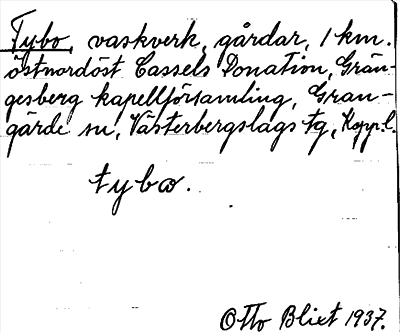 Tybo, vaskverk, gårdar, 1 km.
östnordöst Cassels Donation, Grän-
gesberg kapellförsamling, Gran-
gärde sn, Västerbergslags tg, Kopp. l.
tybω.
Otto Blixt 1937.